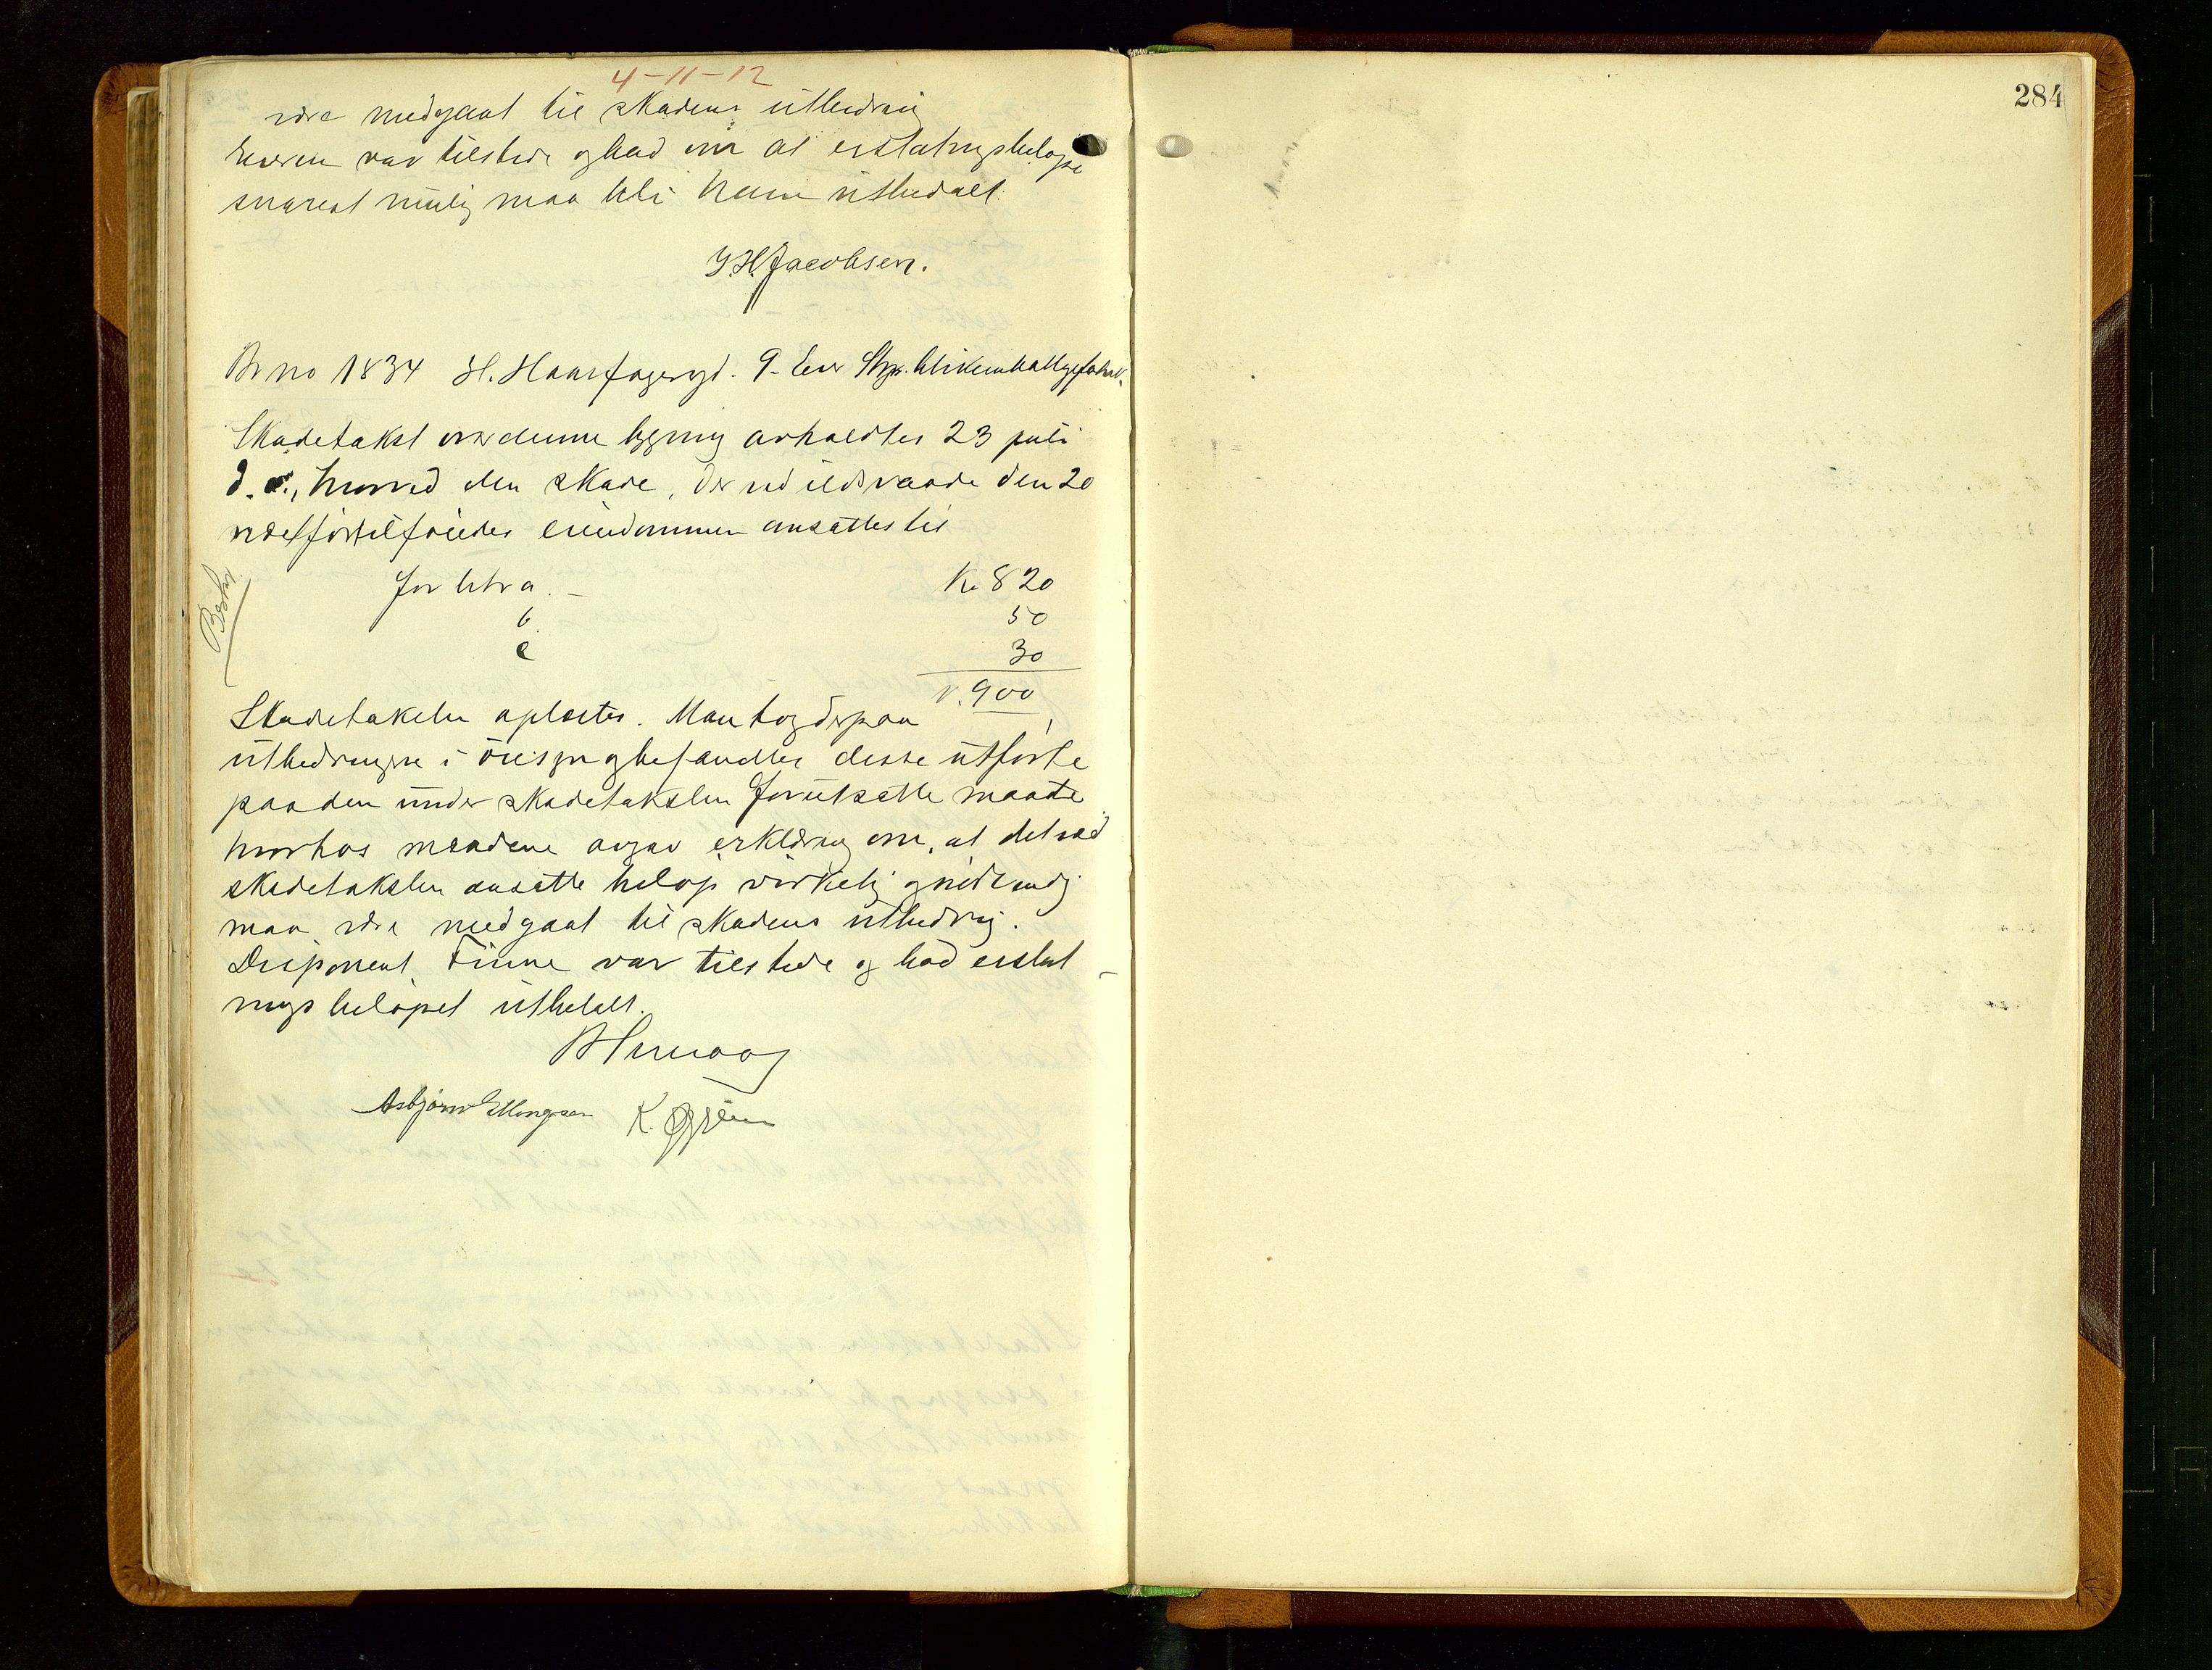 4-11-12
være medgaat til skadens utbedring
Eieren var tilstede og bad om at erstatningsbeløpe
snarest mulig maa bli ham utbetalt.
J. H. Jacobsen.
Br no 1834 H. Haarfagersgd. 9. Eier Stvgr. blikemballagefabrik.
Skadetakst over denne bygning avholdtes 23 juli
d. a., hvorved den skade, der ved ildsvaade den 20
næstfør tilføiedes eiendommen ansattes til
for litra a. - Kr 820
b. 50
c 30
Kr. 900
Beskr.
Skadetaksten oplæstes. Man tog derpaa
utbedringene i øiesyn og befandtes disse utførte
paa den under skadetaksten forutsatte maate
hvorhos mændene avgav erklæring om, at det ved
skadetaksten ansatte beløp virkelig og nødvendig
maa være medgaat til skadens utbedring.
Disponent Finne var tilstede og bad erstat-
ningsbeløpet utbetalt.
Asbjørn Ellingsen K.
284